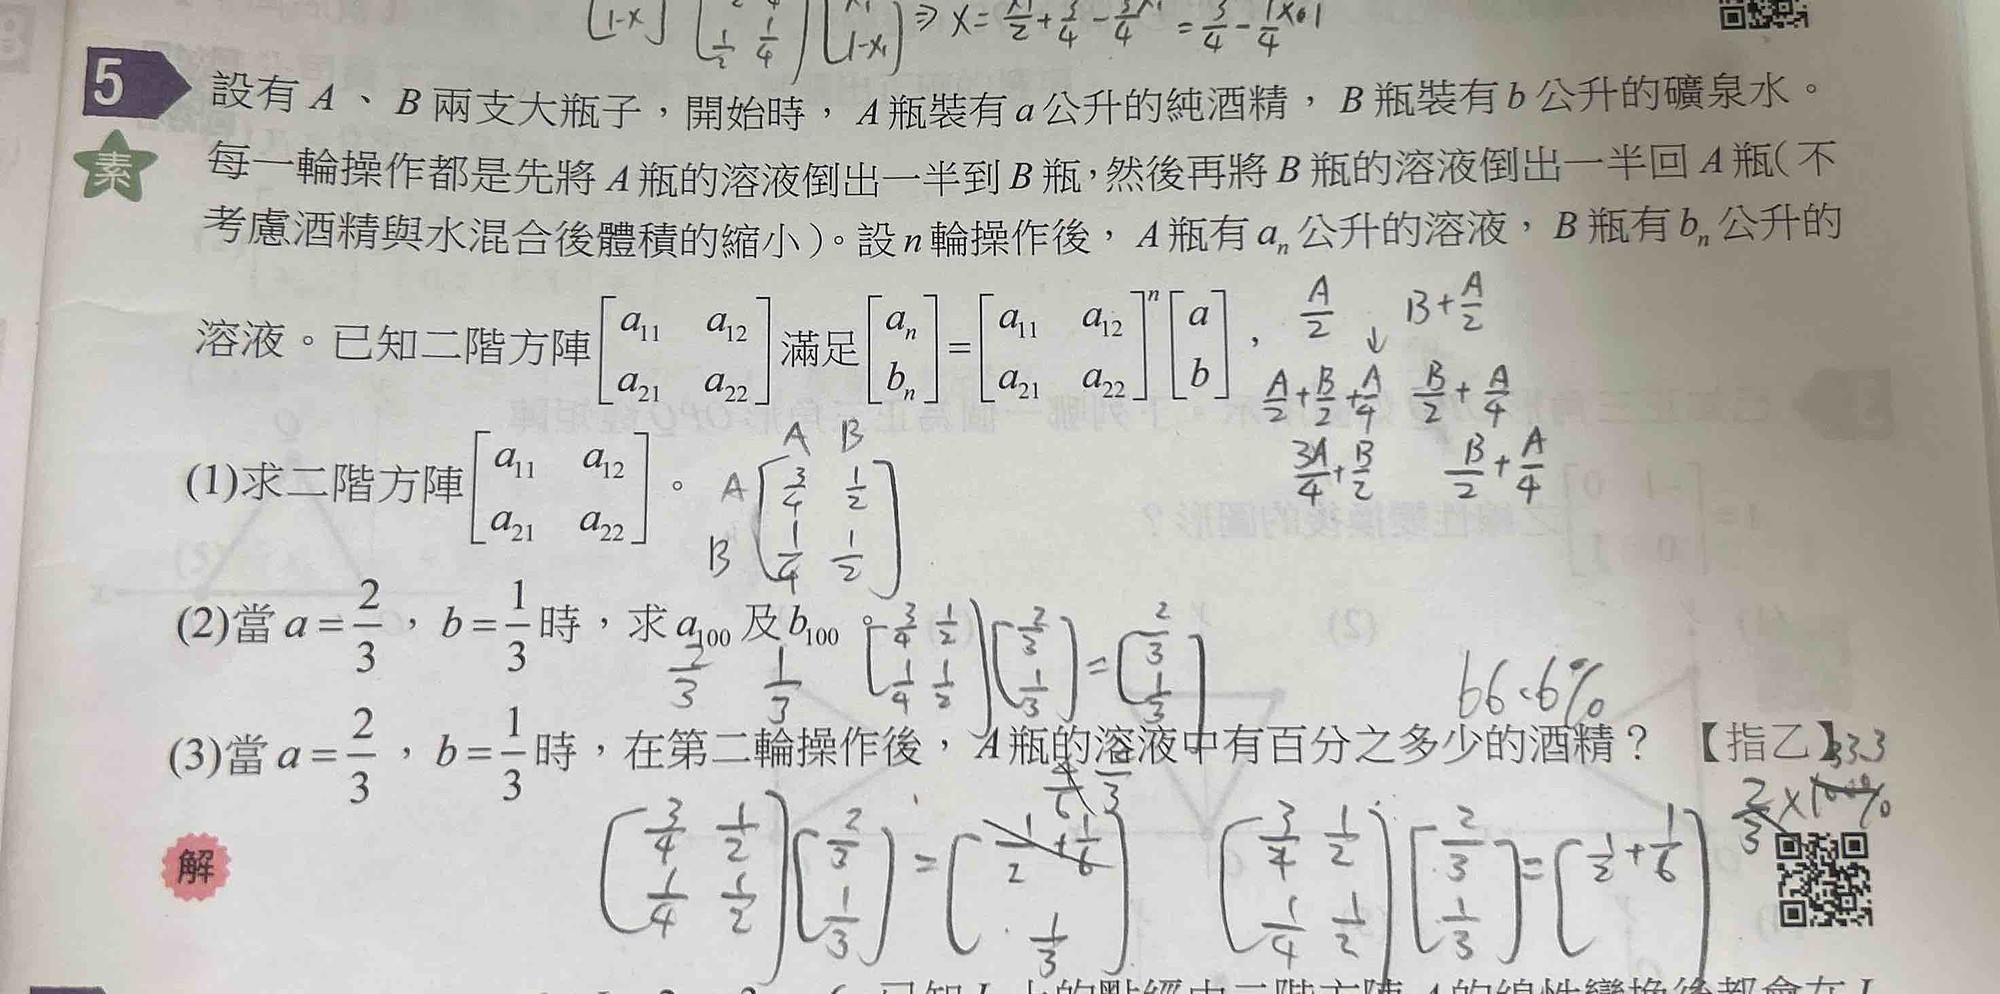 [1-x] [1/2 1/4] [1-x₁] ⇒ x = x₁/2 + 3/4 - 3/4x₁ = 3/4 - 1/4x₁
5 設有 A、B 兩支大瓶子，開始時，A 瓶裝有 a 公升的純酒精，B 瓶裝有 b 公升的礦泉水。
素 每一輪操作都是先將 A 瓶的溶液倒出一半到 B 瓶，然後再將 B 瓶的溶液倒出一半回 A 瓶(不
考慮酒精與水混合後體積的縮小)。設 n 輪操作後，A 瓶有 aₙ 公升的溶液，B 瓶有 bₙ 公升的
溶液。已知二階方陣 [a₁₁ a₁₂; a₂₁ a₂₂] 滿足 [aₙ; bₙ] = [a₁₁ a₁₂; a₂₁ a₂₂]ⁿ [a; b]，
A/2 ↓ B+A/2
A/2+B/2+A/4 B/2+A/4
3A/4+B/2 B/2+A/4
(1)求二階方陣 [a₁₁ a₁₂; a₂₁ a₂₂]。
A B
A [3/4 1/2
B 1/4 1/2]
(2)當 a=2/3，b=1/3 時，求 a₁₀₀ 及 b₁₀₀。 [3/4 1/2; 1/4 1/2] [2/3; 1/3] = [2/3; 1/3]
2/3 1/3
66.6%
(3)當 a=2/3，b=1/3 時，在第二輪操作後，A 瓶的溶液中有百分之多少的酒精？【指乙】
33.3
2/3×100%
解
[3/4 1/2; 1/4 1/2] [2/3; 1/3] = [1/2+1/6; 1/3] [3/4 1/2; 1/4 1/2] [2/3; 1/3] = [1/2+1/6